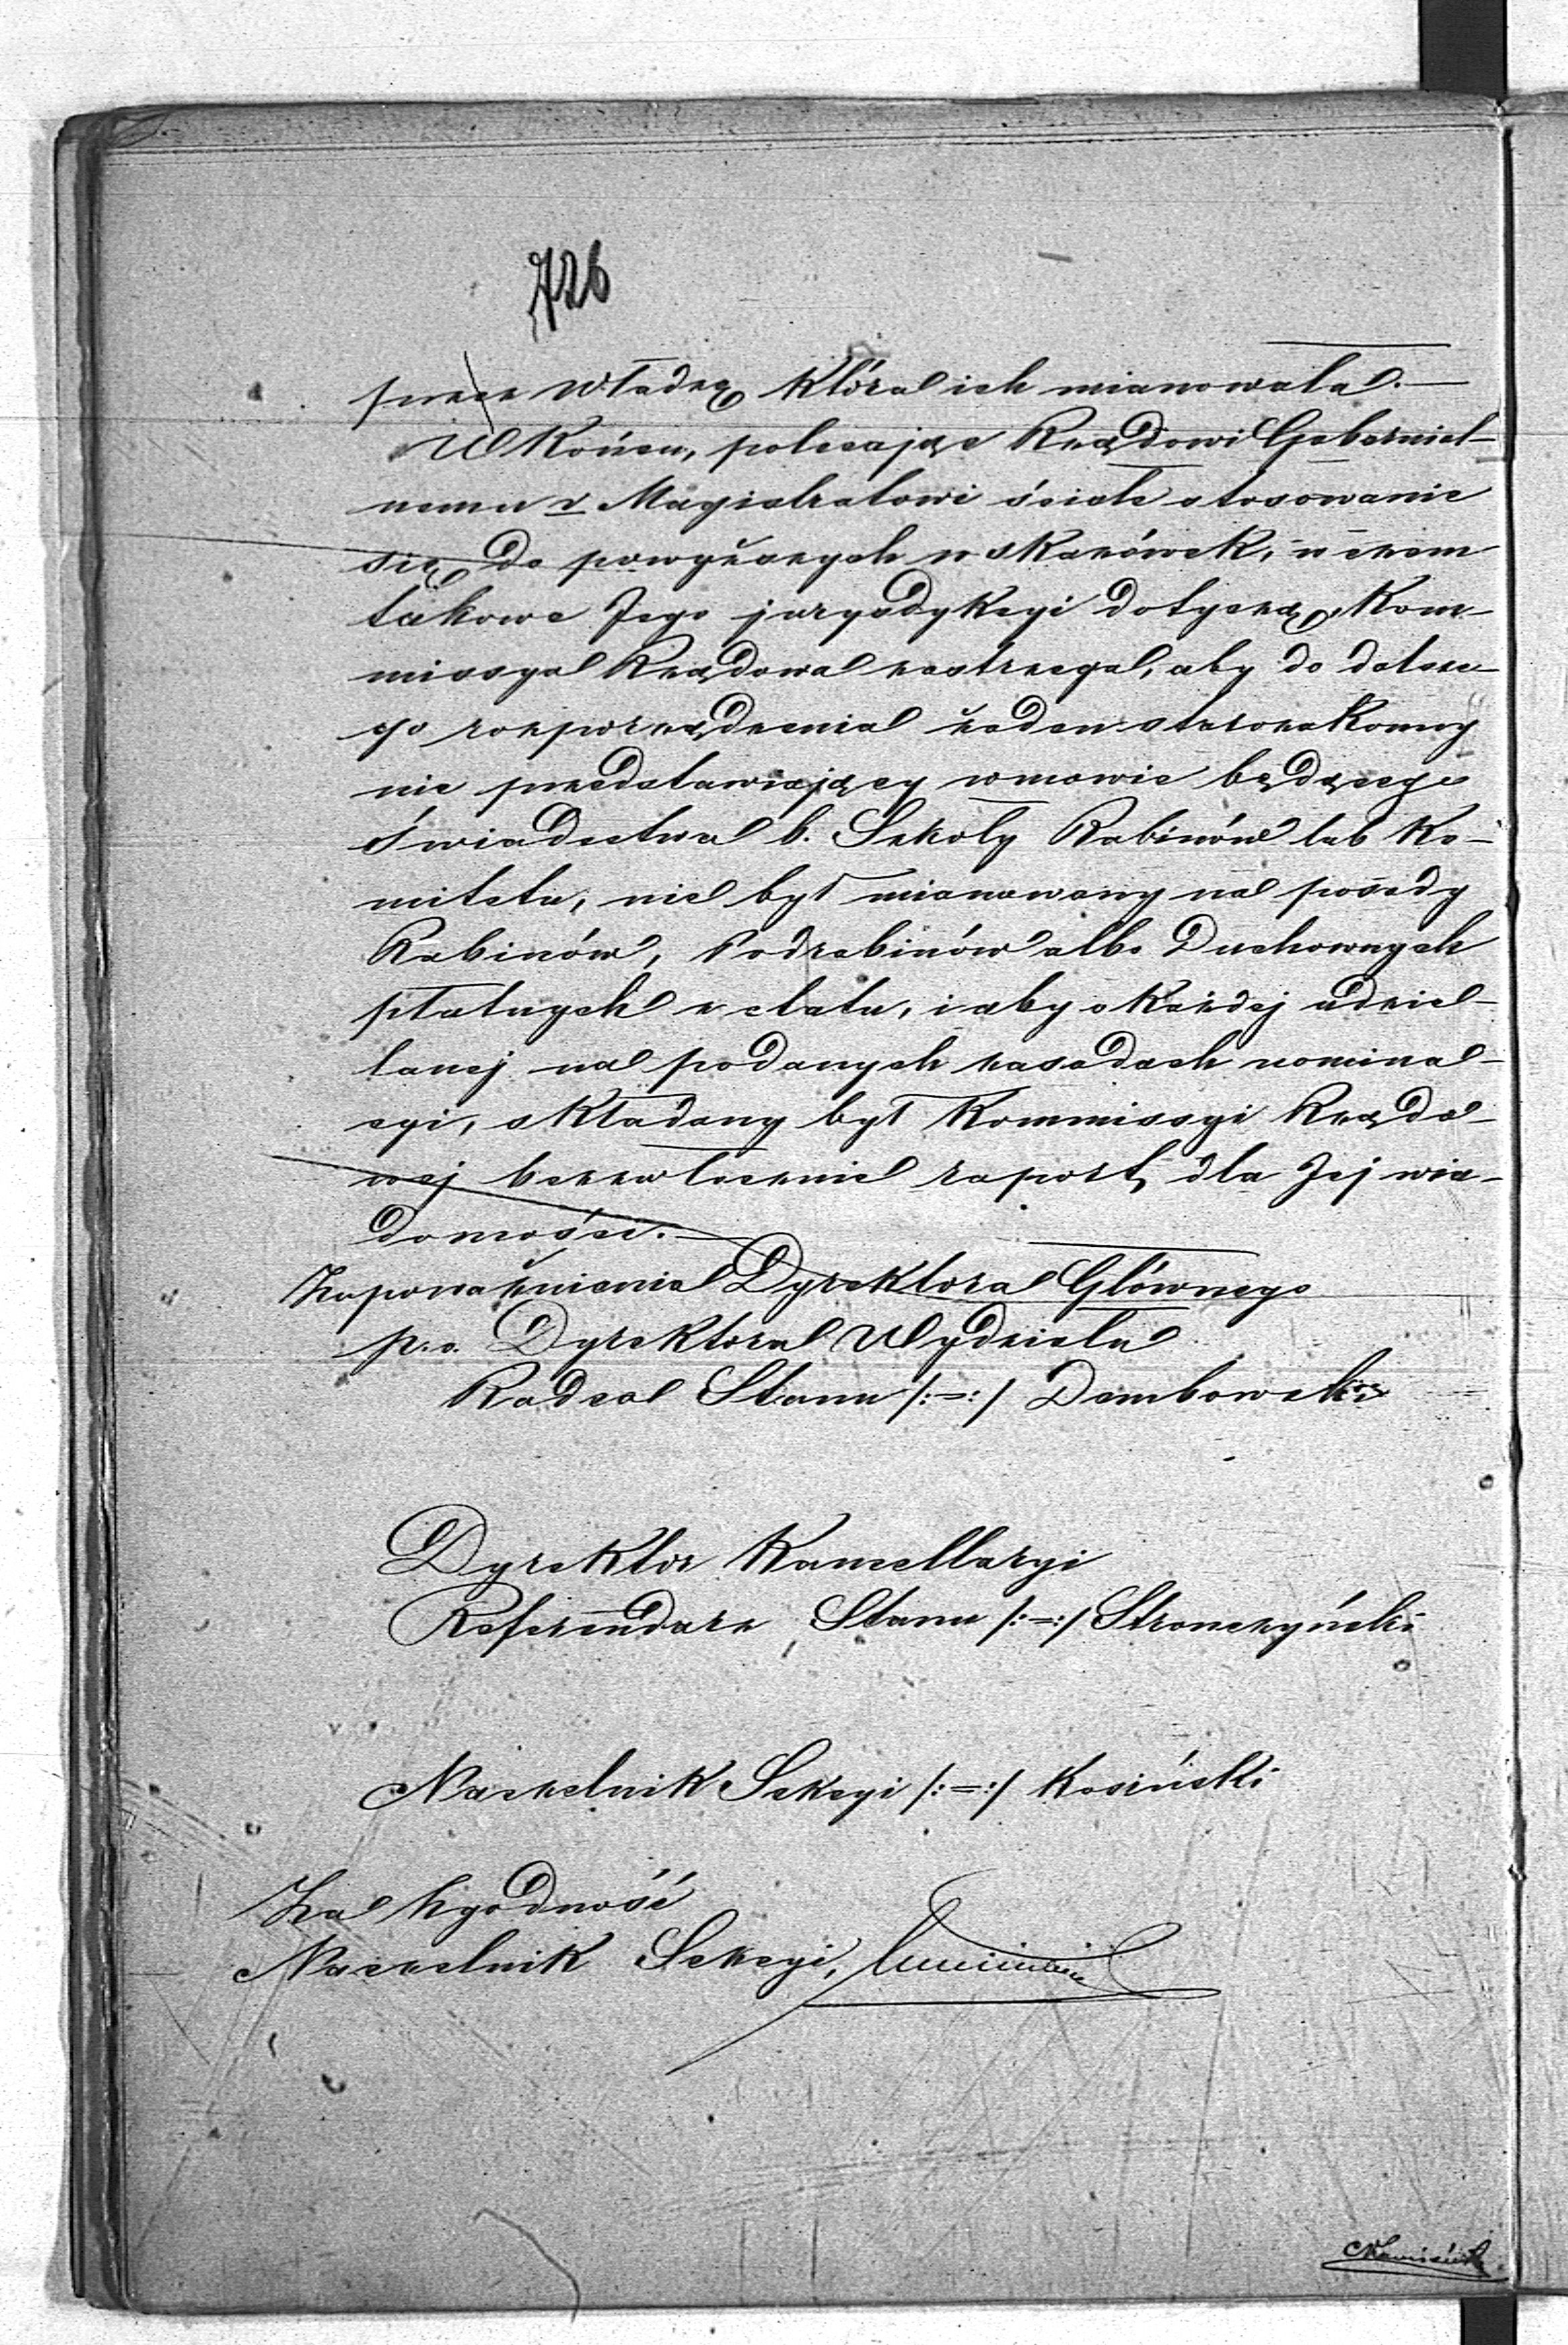 726
przez Władzę która ich mianowała.—
W Końcu, polecając Rządowi Gubernial-
nemu i Magistratowi ściśłe stosowanie
się do powyższych wskazówek, w czem
takowe Jego juryzdykcyi dotyczą, Kom-
missya Rządowa zastrzega, aby do dalsze-
go rozporządzenia żaden starozakonny
nie przedstawiający w mowie będącego
świadectwa b. Szkoły Rabinów lub Ko-
mitetu, nie był mianowany na posady
Rabinów, Podrabinów albo Duchownych
płatnych z etatu, i aby o każdej udzie-
lanej na podanych zasadach nomina-
cyi, składany był Kommissyi Rządo-
wej bezzwłocznie raport, dla Jej wia-
domości.—
Z upoważnienia Dyrektora Głównego
p.o. Dyrektora Wydziału
Radca Stanu /:=:/ Dembowski
Dyrektor Kancellaryi
Referendarz Stanu /:=:/ Stronczyński
Naczelnik Sekcyi /:=:/ Kosiński
Za Zgodność
Naczelnik Sekcyi,